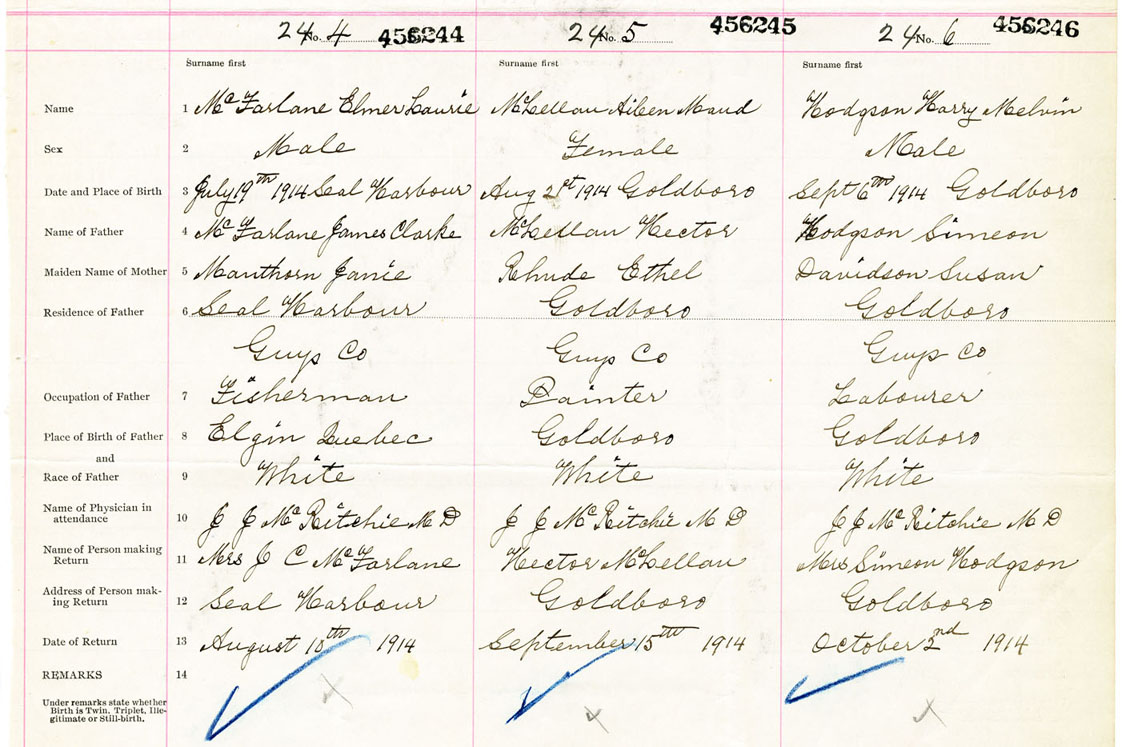 24 No. 4 456244 24 No. 5 456245 24 No. 6 456246
Surname first Surname first Surname first
Name 1 McFarlane Elmer Laurie McLellan Aileen Maud Hodgson Harry Melvin
Sex 2 Male Female Male
Date and Place of Birth 3 July 19th 1914 Seal Harbour Aug 21st 1914 Goldboro Sept 6th 1914 Goldboro
Name of Father 4 McFarlane James Clarke McLellan Hector Hodgson Simeon
Maiden Name of Mother 5 Manthorn Janie Rhude Ethel Davidson Susan
Residence of Father 6 Seal Harbour Goldboro Goldboro
Guys Co Guys Co Guys Co
Occupation of Father 7 Fisherman Painter Labourer
Place of Birth of Father 8 Elgin Quebec Goldboro Goldboro
and
Race of Father 9 White White White
Name of Physician in
attendance 10 J J McRitchie M D J J McRitchie M D J J McRitchie M D
Name of Person making
Return 11 Mrs J C McFarlane Hector McLellan Mrs Simeon Hodgson
Address of Person mak-
ing Return 12 Seal Harbour Goldboro Goldboro
Date of Return 13 August 18th 1914 September 15th 1914 October 2nd 1914
REMARKS 14
Under remarks state whether
Birth is Twin, Triplet, Ille-
gitimate or Still-birth.